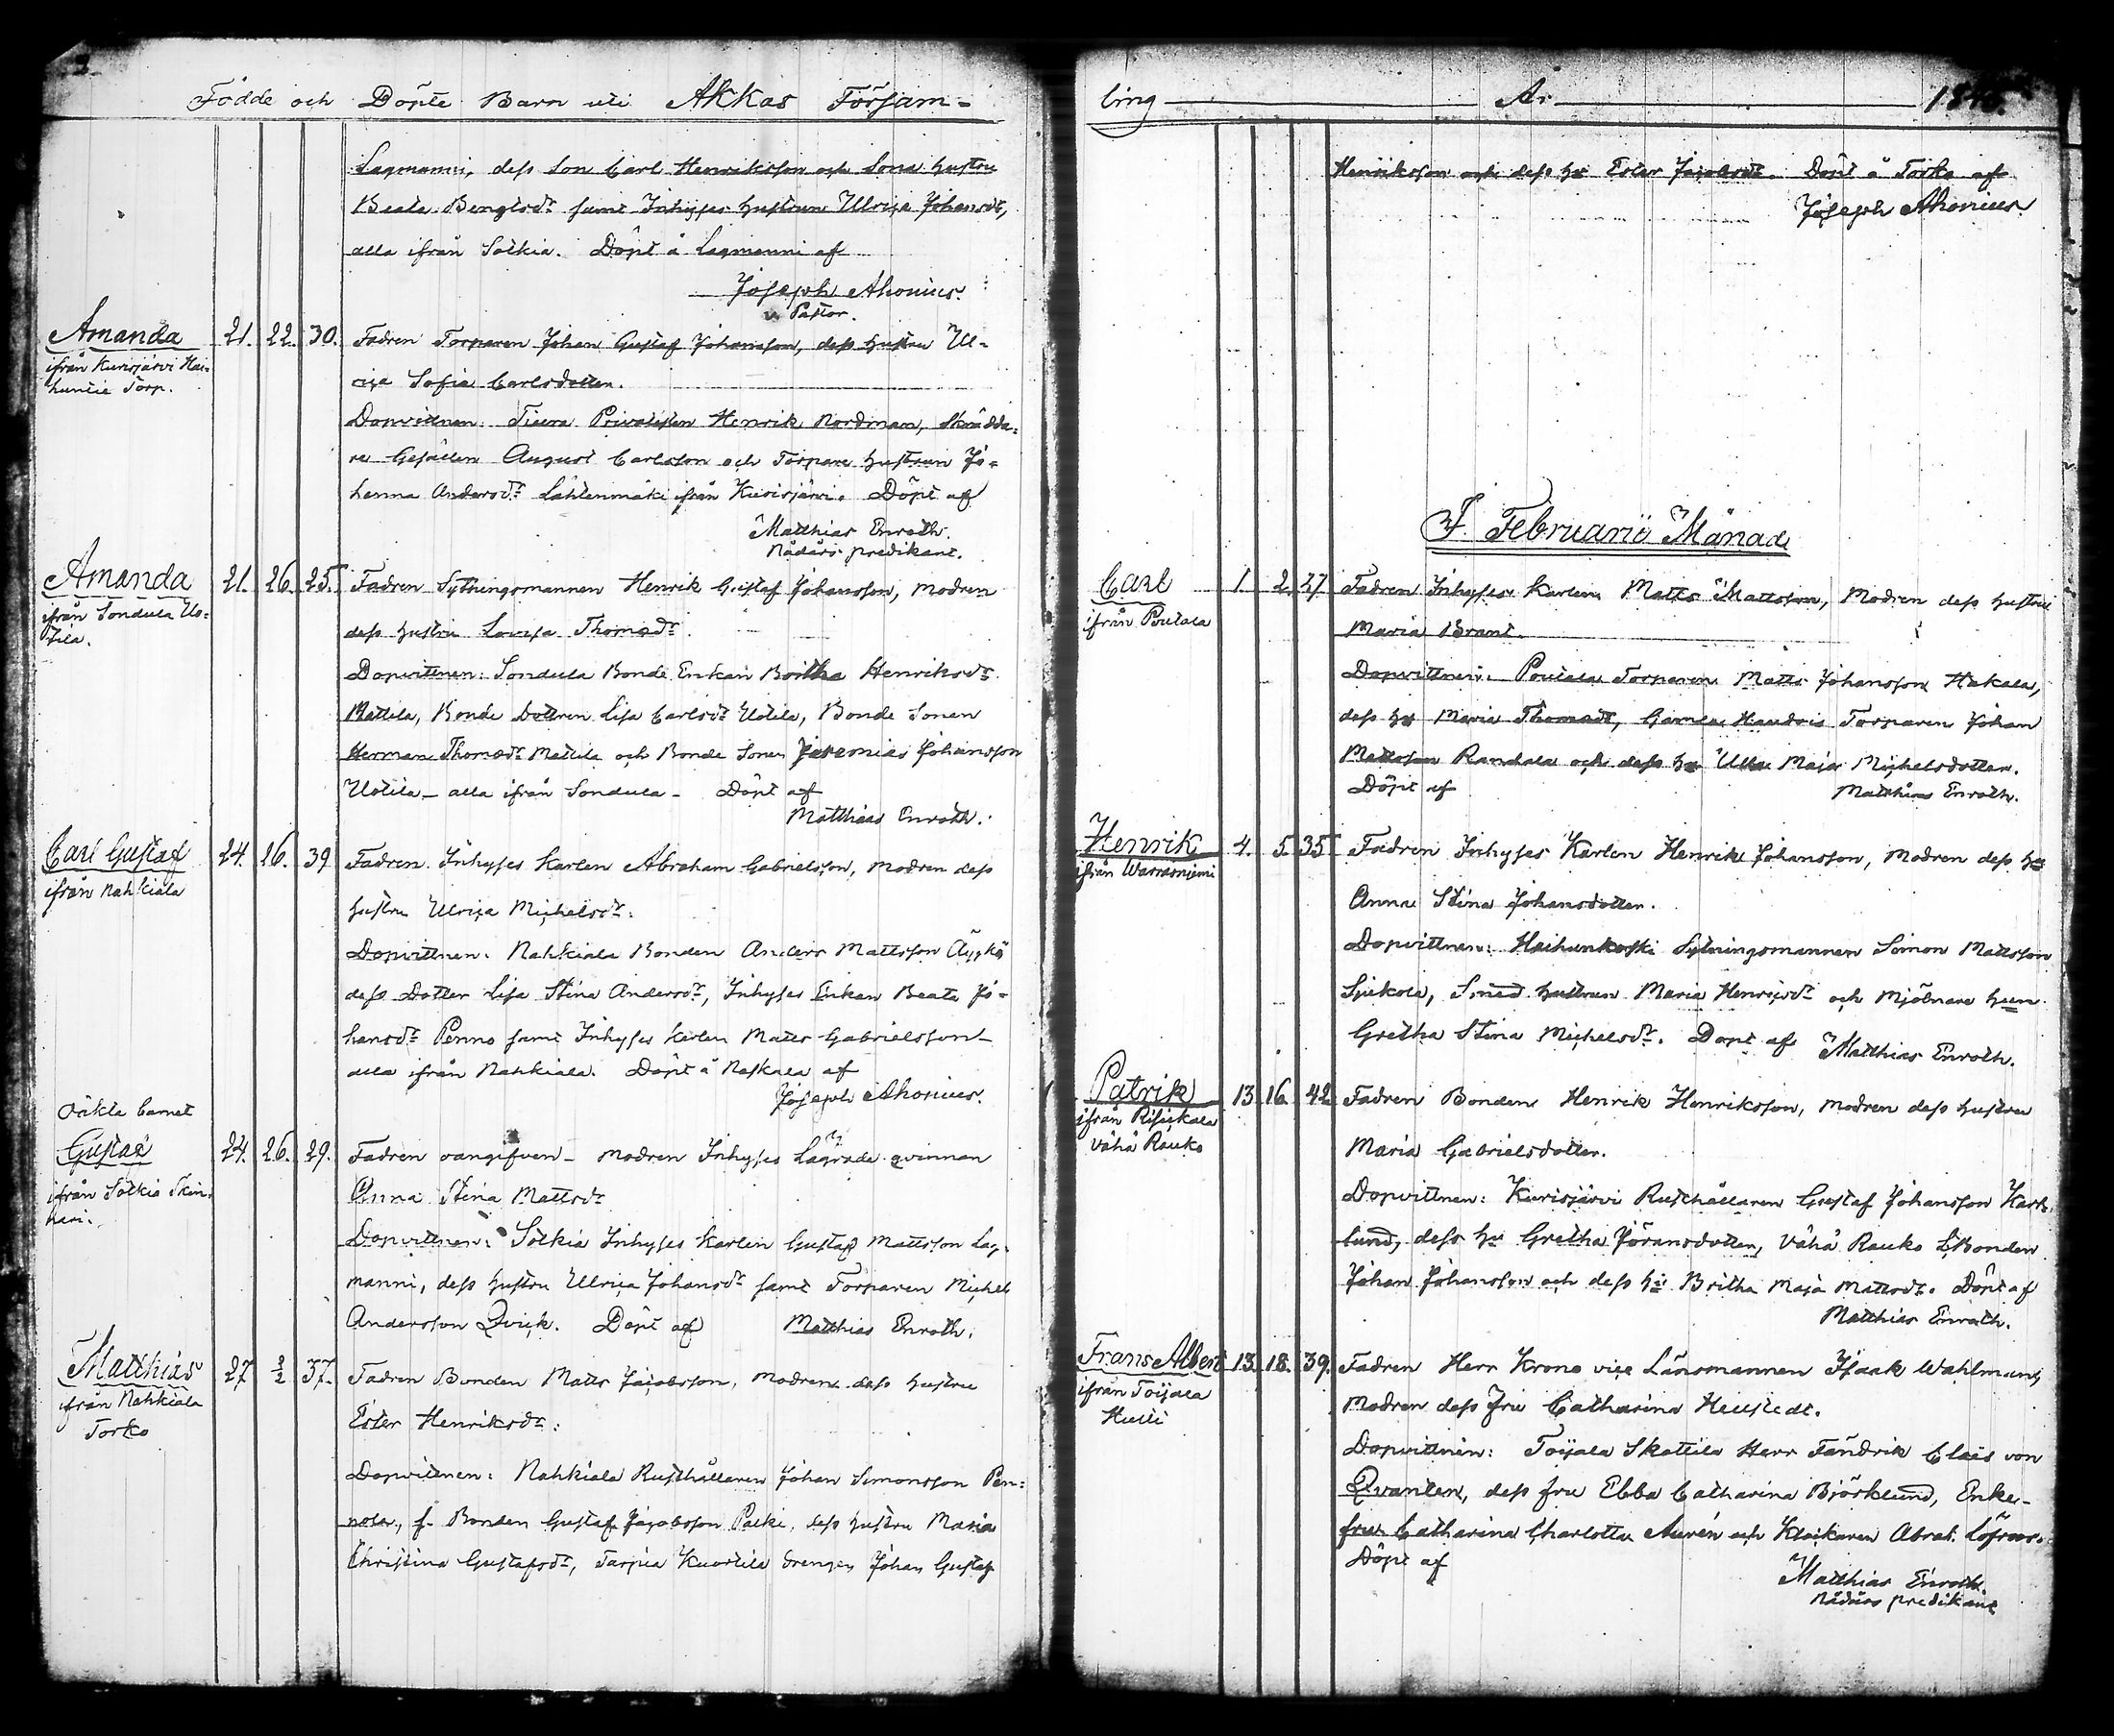 Födde och Döpte Barn uti Akkas Försam-
Lagmanni, dess son Carl Henriksson och Sona hustru
Beata Bengtsdr samt Inhyses hustrun Ulrica Johansdr,
alla ifrån Sotkia. Döpt å Lagmanni af
Joseph Ahonius.
v. Pastor.
Amanda 21. 22. 30. Fadren Torparen Johan Gustaf Johansson, dess hustru Ul-
ifrån Kurisjärvi Hai-
huntie Torp.
rica Sofia Carlsdotter.
Dopvittnen: Privatisten Henrik Nordman, Skrädda-
re Gesällen August Carlsson och Torpare hustrun Jo-
hanna Andersdr Lähtenmäki ifrån Kurisjärvi. Döpt af
Matthias Enroth.
Nådårs predikant.
Amanda 21. 26. 25. Fadren Sytningsmannen Henrik Gustaf Johansson, modren
ifrån Sondula Uo-
tila.
dess hustru Lovisa Thomasdr.
Dopvittnen: Sondula Bonde Enkan Britha Henriksdr
Mattila, Bonde Dottren Lisa Carlsdr Uotila, Bonde Sonen
Herman Thomasdr Mattila och Bonde Sonen Jeremias Johansson
Uotila – alla ifrån Sondula – Döpt af
Matthias Enroth.
Carl Gustaf 24. 26. 39 Fadren Inhyses Karlen Abraham Gabrielsson, modren dess
ifrån Nahkiala
hustru Ulrica Michelsdr.
Dopvittnen: Nahkiala Bonden Anders Mattsson Äijkö
dess Dotter Lisa Stina Andersdr, Inhyses Enkan Beata Jo-
hansdr Penno samt Inhyses Karlen Matts Gabrielsson –
alla ifrån Nahkiala. Döpt å Naskala af
Joseph Ahonius.
Oäkta barnet
Gustaf 24. 26. 29. Fadren oangifven – modren Inhyses Lägrade qvinnan
ifrån Sotkia Skin-
nari.
Anna Stina Mattsdr
Dopvittnen: Sotkia Inhyses Karlen Gustaf Mattsson Lag-
manni, dess hustru Ulrica Johansdr samt Torparen Michel
Andersson Qvick. Döpt af Matthias Enroth.
Matthias 27 2/2 37. Fadren Bonden Matts Jacobsson, modren dess hustru
ifrån Nahkiala
Torko
Ester Henriksdr.
Dopvittnen: Nahkiala Rusthållaren Johan Simonsson Pen-
nola, f. Bonden Gustaf Jacobsson Palki, dess hustru Maria
Christina Gustafsdr, Tarpia Kuortila Drengen Johan Gustaf
ling År 1845.
Henriksson och dess hu Ester Jacobsdr. Döpt å Torko af
Joseph Ahonius.
I Februarii Månad
Carl 1. 2. 27 Fadren Inhyses Karlen Matts Mattsson, Modren dess hustru
ifrån Poutala
Maria Brant.
Dopvittnen: Poutala Torparen Matts Johansson Hakala,
dess hu Maria Thomasdr, Gamla Torparen Johan
Mattsson Randala och dess hu Ulla Maja Michelsdotter.
Döpt af Matthias Enroth.
Henrik 4. 5. 35 Fadren Inhyses Karlen Henrik Johansson, modren dess hu
ifrån Warrasniemi
Anna Stina Johansdotter.
Dopvittnen: Haihunkoski Sytningsmannen Simon Mattsson
Smed hustrun Maria Henricsdr och Mjölnare hun
Gretha Stina Michelsdr. Döpt af Matthias Enroth.
Patrik 13 16. 42 Fadren Bonden Henrik Henriksson, modren dess hustru
ifrån Risickala
Vähä Rauko
Maria Gabrielsdotter.
Dopvittnen: Kurisjärvi Rusthållaren Gustaf Johansson Karl-
lund, dess hu Gretha Göransdotter, Vähä Rauko Bonden
Johan Johansson och dess hu Britha Maja Mattsdr. Döpt af
Matthias Enroth.
Frans Albert 13. 18. 39. Fadren Herr Krono vice Länsmannen Isaak Wahlman,
ifrån Toijala
Hutti
modren dess fru Catharina Heustedt.
Dopvittnen: Toijala Skattila Herr Fändrik Claës von
Qvanten, dess fru Ebba Catharina Björklund, Enke-
fru Catharina Charlotta Aurén och Klockaren Abrah. Löfroos.
Döpt af
Matthias Enroth.
Nådårs predikant